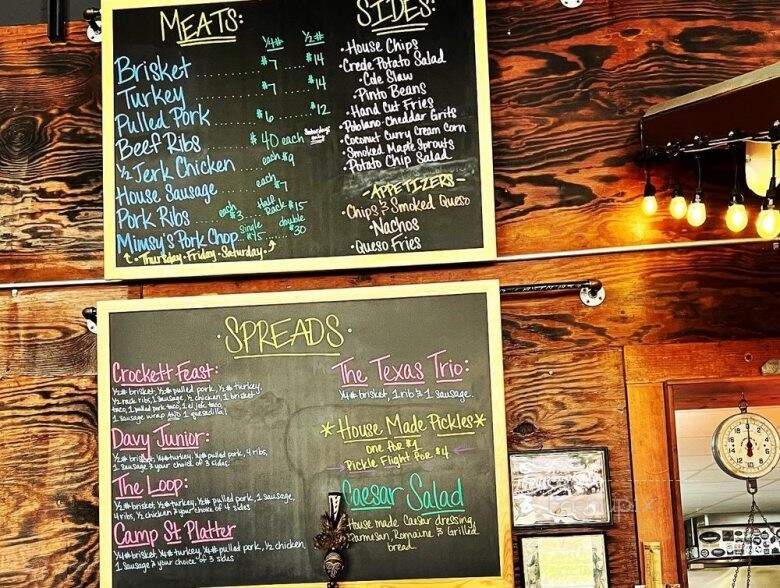 MEATS:
¼# ½#
Brisket $7 $14
Turkey $7 $14
Pulled Pork $6 $12
Beef Ribs $40 each
½ Jerk Chicken each $9
House Sausage each $7
Pork Ribs each $3 Half Rack $15
Mimsy's Pork Chop... single $15 double $30
Thursday · Friday · Saturday
SIDES:
House Chips
Creole Potato Salad
Cole Slaw
Pinto Beans
Hand Cut Fries
Poblano-Cheddar Grits
Coconut Curry Cream Corn
Smoked Maple Sprouts
Potato Chip Salad
APPETIZERS
Chips & Smoked Queso
Nachos
Queso Fries
SPREADS
Crockett Feast:
½# brisket, ½# pulled pork, ½# turkey,
½ rack ribs, 1 sausage, ½ chicken, 1 brisket
taco, 1 pulled pork taco, 1 el jefe taco,
1 sausage wrap AND 1 quesadilla!
Davy Junior:
½# brisket, ¼# pulled pork, 4 ribs,
1 sausage & your choice of 3 sides
The Loop:
½# brisket, ½# turkey, ½# pulled pork, 1 sausage,
4 ribs, ½ chicken & your choice of 4 sides
Camp St Platter
¼# brisket, ¼# turkey, ¼# pulled pork, ½ chicken
1 sausage & your choice of 3 sides
The Texas Trio:
¼# brisket, 1 rib & 1 sausage.
*House Made Pickles*
one for $1
Pickle Flight for $4
Caesar Salad
House made Caesar dressing,
Parmesan, Romaine & Grilled
bread.